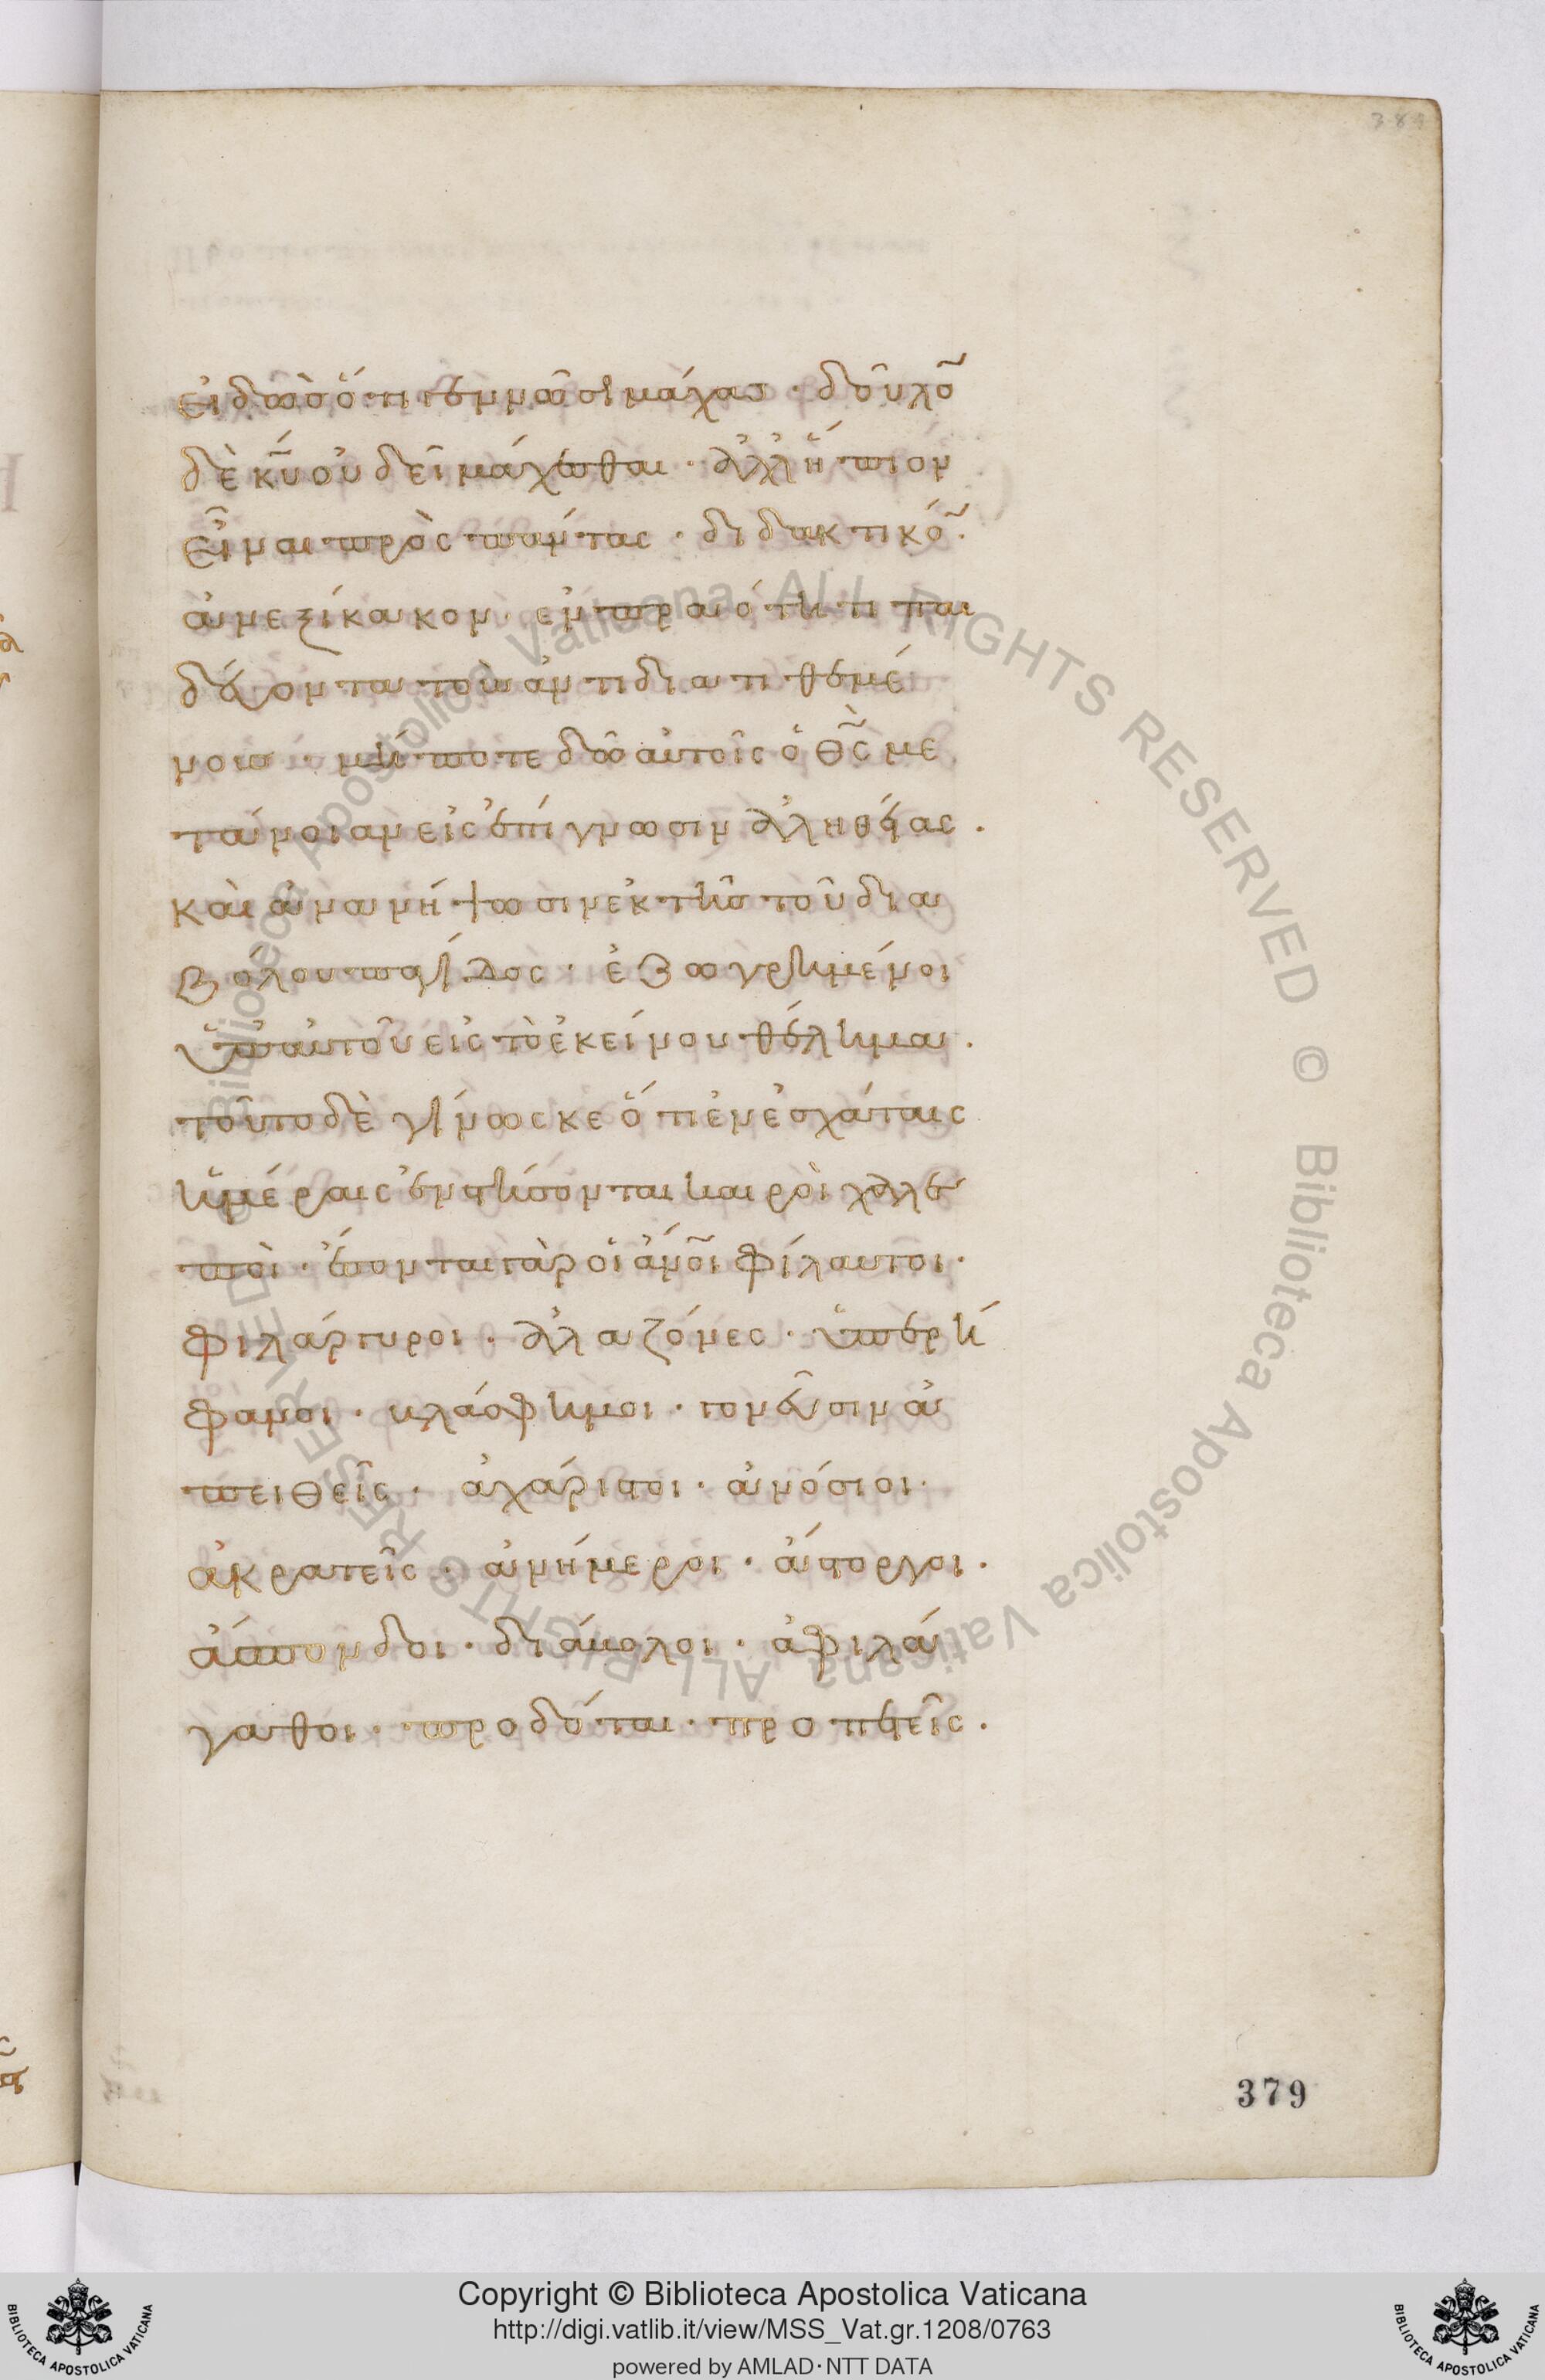 384
εἰδὼσ ὅτι γεννῶσι μάχασ · δοῦλο̃
δὲ κ̅υ̅ οὐ δεῖ μάχεσθαι · ἀλλ ἤπιον
εἶναι πρὸς πάντας · διδακτικό̃ ·
ἀνεξίκακον · ἐν πραότητι παι
δεύοντα τοὺσ ἀντιδιατιθεμέ
νουσ · μήποτε δῶ αὐτοῖς ὁ θ̅ς̅ με
τάνοιαν εἰς ἐπίγνωσιν ἀληθείας ·
καὶ ἀνανήψωσιν ἐκ τῆσ τοῦ δια
βόλου παγίδος · ἐζωγρημένοι
ὑπ αὐτοῦ εἰς τὸ ἐκείνου θέλημα ·
τοῦτο δὲ γίνωσκε ὅτι ἐν ἐσχάταις
ἡμέραις ἐνστήσονται καιροὶ χαλε
ποὶ · ἔσονται γὰρ οἱ ἄν̅ο̅ι̅ φίλαυτοι ·
φιλάργυροι · ἀλαζόνες · ὑπερή
φανοι · βλάσφημοι · γονεῦσιν ἀ
πειθεῖς · ἀχάριστοι · ἀνόσιοι ·
ἀκρατεῖς · ἀνήμεροι · ἄστοργοι ·
ἄσπονδοι · διάβολοι · ἀφιλά
γαθοι · προδόται · προπετεῖς ·
379
Biblioteca Apostolica Vaticana ALL RIGHTS RESERVED © Biblioteca Apostolica Vaticana ALL RIGHTS RESERVED ©
Copyright © Biblioteca Apostolica Vaticana
http://digi.vatlib.it/view/MSS_Vat.gr.1208/0763
powered by AMLAD·NTT DATA
BIBLIOTECA APOSTOLICA VATICANA
BIBLIOTECA APOSTOLICA VATICANA